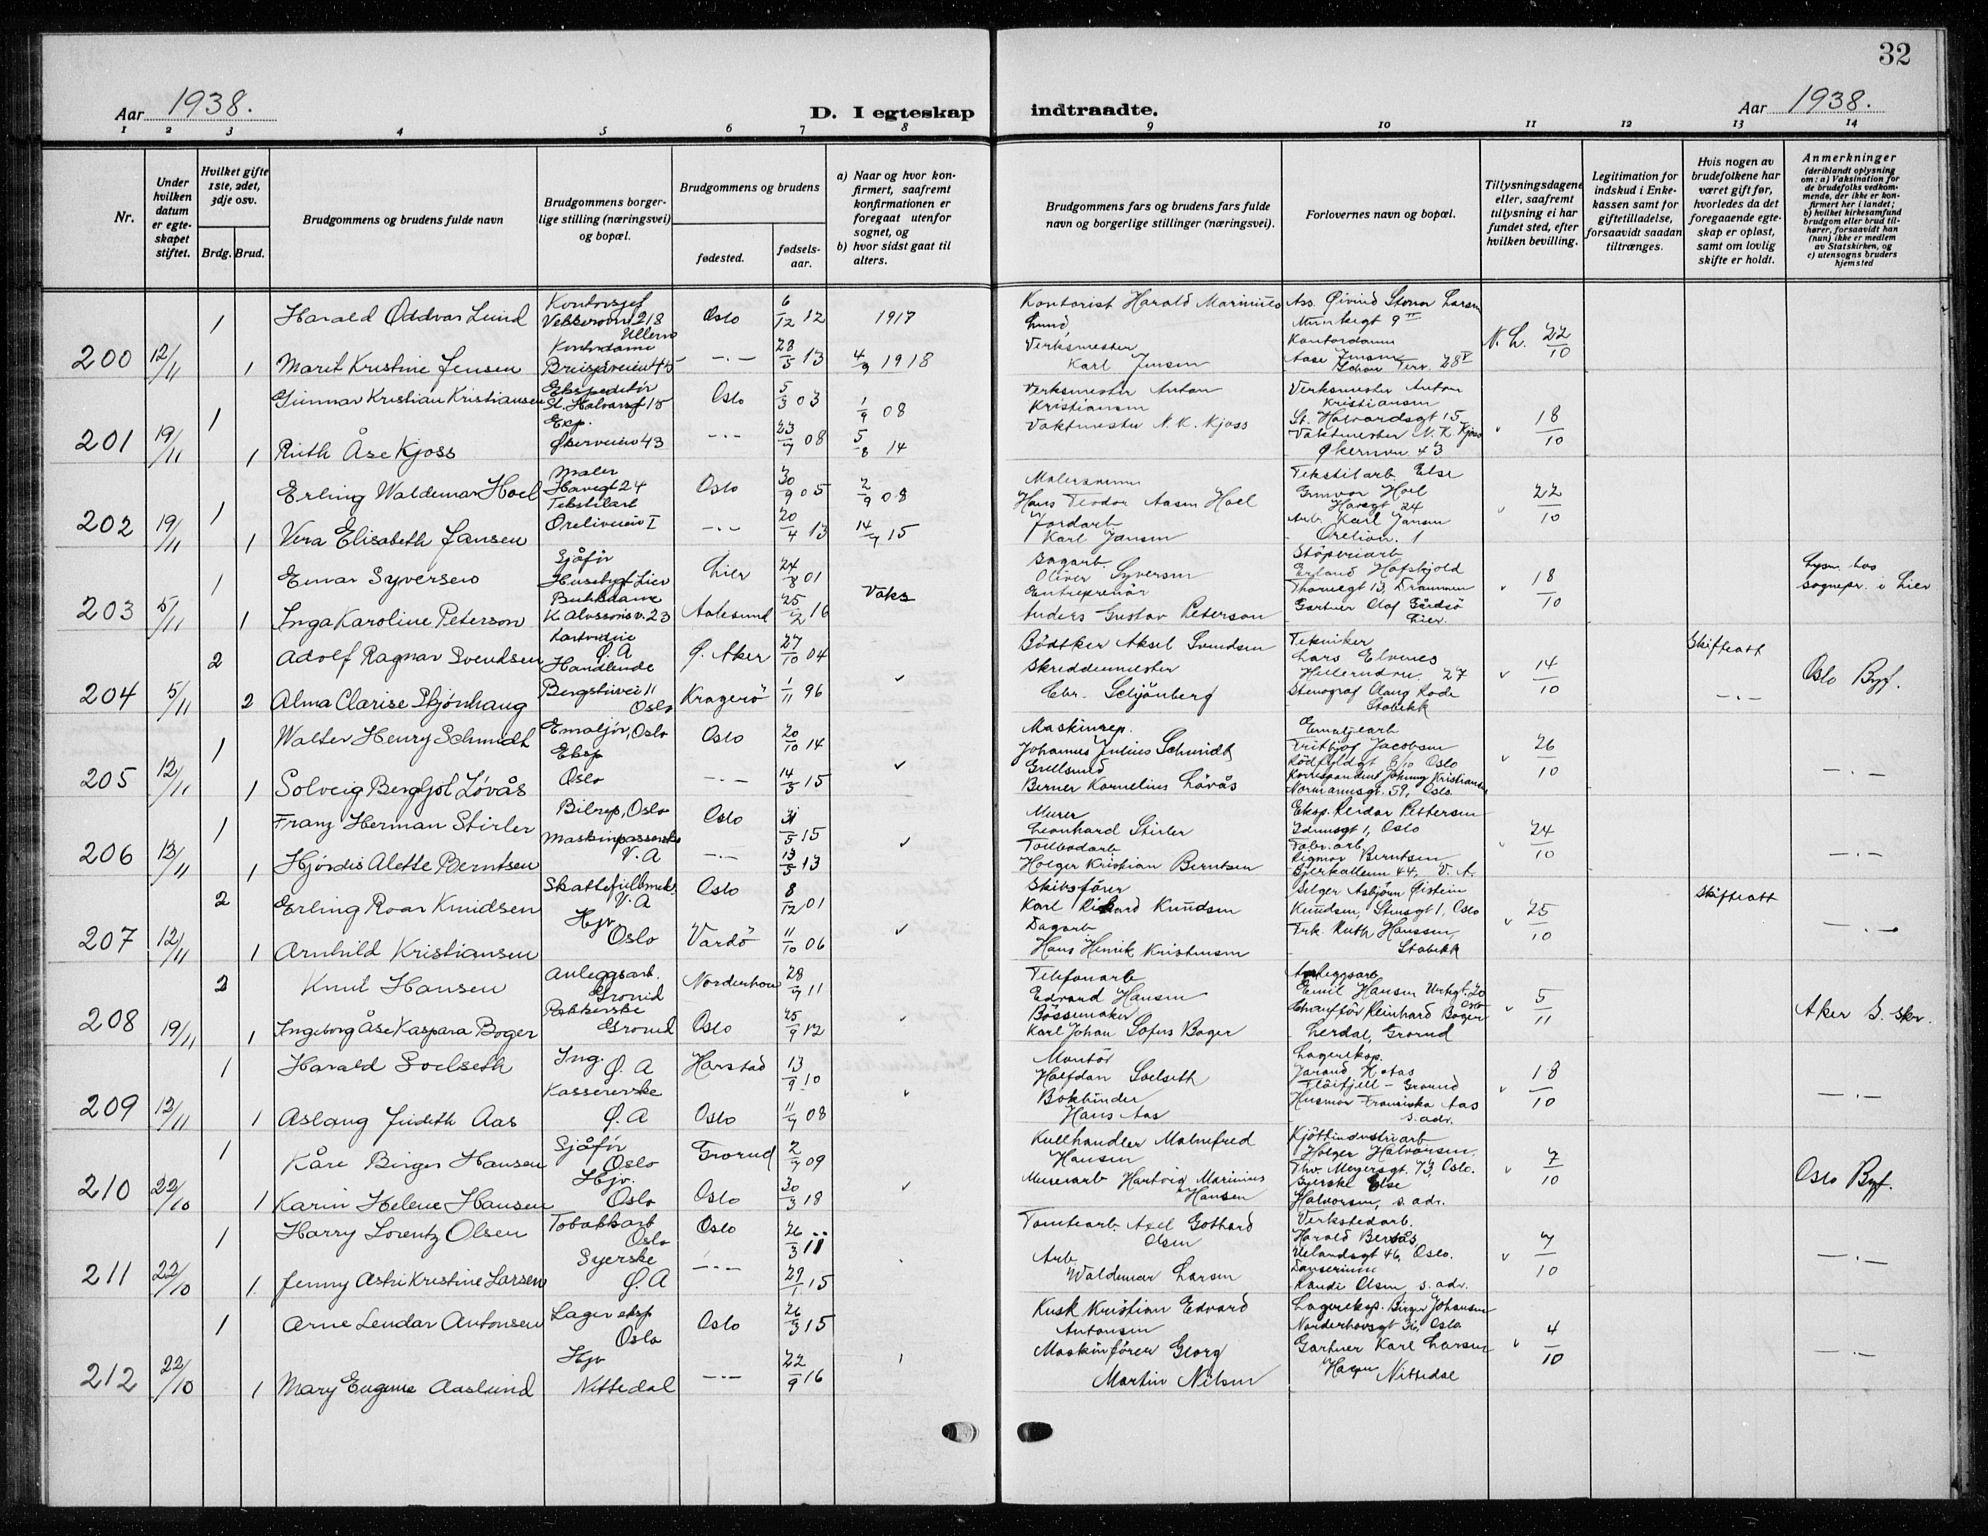 32
Aar 1938.
D. I egteskap
indtraadte.
Aar 1938.
1 2 3 4 5 6 7 8 9 10 11 12 13 14
Nr.
Under hvilken datum er egteskapet stiftet.
Hvilket gifte 1ste, 2det, 3dje osv.
Brdg. Brud.
Brudgommens og brudens fulde navn
Brudgommens borgerlige stilling (næringsvei) og bopæl.
Brudgommens og brudens
fødested.
fødselsaar.
a) Naar og hvor konfirmert, saafremt konfirmationen er foregaat utenfor sognet, og
b) hvor sidst gaat til alters.
Brudgommens fars og brudens fars fulde navn og borgerlige stillinger (næringsvei).
Forlovernes navn og bopæl.
Tillysningsdagene eller, saafremt tillysning ei har fundet sted, efter hvilken bevilling.
Legitimation for indskud i Enkekassen samt for giftetilladelse, forsaavidt saadan tiltrænges.
Hvis nogen av brudefolkene har været gift før, hvorledes da det foregaaende egteskap er opløst, samt om lovlig skifte er holdt.
Anmerkninger (deriblandt oplysning om: a) Vaksination for de brudefolks vedkommende, der ikke er konfirmert her i landet; b) hvilket kirkesamfund brudgom eller brud tilhører, forsaavidt han (hun) ikke er medlem av Statskirken, og c) utensogns bruders hjemsted
1 Harald Oddvar Lund Kontorsjef Vekkerøvn 218 Ullern Oslo 6/12 12 1917 Kontorist Harald Marinius Lund Ass. Øivind Stenor Larsen Munkegt 9 II
200 12/11 1 Marit Kristine Jensen Kontordame 43 -"- 28/5 13 4/9 1918 Verksmester Karl Jensen Kontordame Aase Jensen 28 V N. L. 22/10
1 Gunnar Kristian Kristiansen Ekspeditør St. Halvardsgt 15 Oslo 5/3 03 1/9 08 Verksmester Anton Kristiansen Verksmester Anton Kristiansen St. Halvardsgt 15
201 19/11 1 Ruth Åse Kjoss Eksp. Økernveien 43 -"- 23/7 08 5/8 14 Vaktmester N. K. Kjoss Vaktmester N. K. Kjoss Økernvn 43 " 18/10
1 Erling Waldemar Hoel Maler Havegt 24 Oslo 30/9 05 2/9 08 Malersvenn Hans Teodor Aasen Hoel Tekstilarb Else Gunvor Hoel Havegt 24
202 19/11 1 Vera Elisabeth Jansen Tekstilarb Oreliveien 1 -"- 20/4 13 14/7 15 Jordarb Karl Jansen Arb. Karl Jansen Orelivn. 1 " 22/10
1 Einar Syversen Sjåfør Husebygt Lier Lier 24/8 01 Sagarb. Oliver Syversen Støperiarb Erland Hofskjold Thornegt 13, Drammen
203 5/11 1 Inga Karoline Peterson Butikdame K. Alvssonsv. 23 Aalesund 25/2 16 Vaks Entreprenør Anders Gustav Peterson Gartner Olaf Gårdsø Lier " 18/10 Lysn. hos sognepr. i Lier
2 Adolf Ragnar Svendsen Ø. A Ø. Aker 27/10 04 Bødtker Aksel Svendsen Tekniker Lars Elvenes Hellerudvn. 27 Skifteatt
204 5/11 2 Alma Clarise Skjønhaug Handlende Bergstien 11 Oslo Kragerö 1/11 96 Skreddermester Ebr. Schjønberg Stenograf Aaug Rode Stabekk " 14/10 -"- Oslo Byf.
1 Walter Henry Schmidt Emaljør, Oslo Oslo 20/10 14 Maskinrep. Johannes Julius Schmidt Emaljearb Fritjof Jacobsen Rödfyldgt 6/10 Oslo
205 12/11 1 Solveig Bergljot Løvås Eksp Oslo -"- 14/5 15 Gullsmed Berner Kornelius Løvås Korrespondent Johnny Kristiansen Normannsgt. 59, Oslo. " 26/10 -"-
1 Franz Herman Stirler Bilrep, Oslo Oslo 31/5 15 Murer Leonhard Stirler Eksp. Reidar Pettersen Idunsgt 1, Oslo
206 13/11 1 Hjørdis Alette Berntsen Maskinpasserske V. A -"- 13/5 13 Tollbodarb Holger Kristian Berntsen Fabr. arb. Ragnar Berntsen Bjerkalleen 44, V. A. " 24/10 -"-
2 Erling Roar Knudsen Skattefullm. V. A Oslo 8/12 01 Skibsfører Karl Rikard Knudsen Selger Asbjørn Øistein Knudsen, Stensgt 1, Oslo Skifteatt
207 12/11 1 Arnhild Kristiansen Hjv Oslo Vardö 11/10 06 Dagarb. Hans Henrik Kristensen Frk. Ruth Hanssen, Stabekk " 25/10 -"-
2 Knut Hansen Anleggsarb. Grorud Norderhov 28/7 11 Telefonarb Edvard Hansen Anleggsarb Emil Hansen Urtegt. 20 Oslo
208 19/11 1 Ingeborg Åse Kaspara Boger Pakkerske Grorud Oslo 25/9 12 Bössemaker Karl Johan Sofus Boger Chauffør Reinhard Boger Lerdal, Grorud " 5/11 Aker S. skr.
1 Harald Soelseth Ing. Ø. A Harstad 13/9 10 Montør Halfdan Soelseth Lagereksp. Jarand H. Aas Flåifjell - Grorud
209 12/11 1 Aslaug Judeth Aas Kassererske Ø. A Oslo 11/7 08 Bokbinder Hans Aas Husmor Fransiska Aas s. adr. " 18/10 -"-
1 Kåre Birger Hansen Sjåfør Oslo Grorud 2/7 09 Kullhandler Malmfred Hansen Kjøttindustriarb Holger Halvorsen. Thv. Meyersgt. 73, Oslo.
210 22/10 1 Karin Helene Hansen Hjv. Oslo Oslo 30/3 18 Murerarb Hartvig Marinius Hansen Syerske Else Halvorsen, s. adr. " 7/10 Oslo Byf.
1 Harry Lorentz Olsen Tobakkarb Oslo Oslo 26/3 11 Tomtearb Axel Gothard Olsen Verkstedarb. Harald Bersås Uelandsgt 46, Oslo.
211 22/10 1. Jenny Astri Kristine Larsen Syerske Ø. A -"- 29/1 15 Arb. Waldemar Larsen Danserinne Randi Olsen s. adr. " 7/10 -"-
1 Arne Lendar Antonsen Lager eksp Oslo Oslo 26/3 15 Kusk Kristian Edvard Antonsen Lagereksp. Birger Johansen Norderhovsgt 36, Oslo.
212 22/10 1 Mary Eugenie Aaslund Hjv Nittedal -"- 22/9 16 Maskinfører Georg Martin Nilsen Gartner Karl Larsen Hagen Nittedal " 4/10 -"-